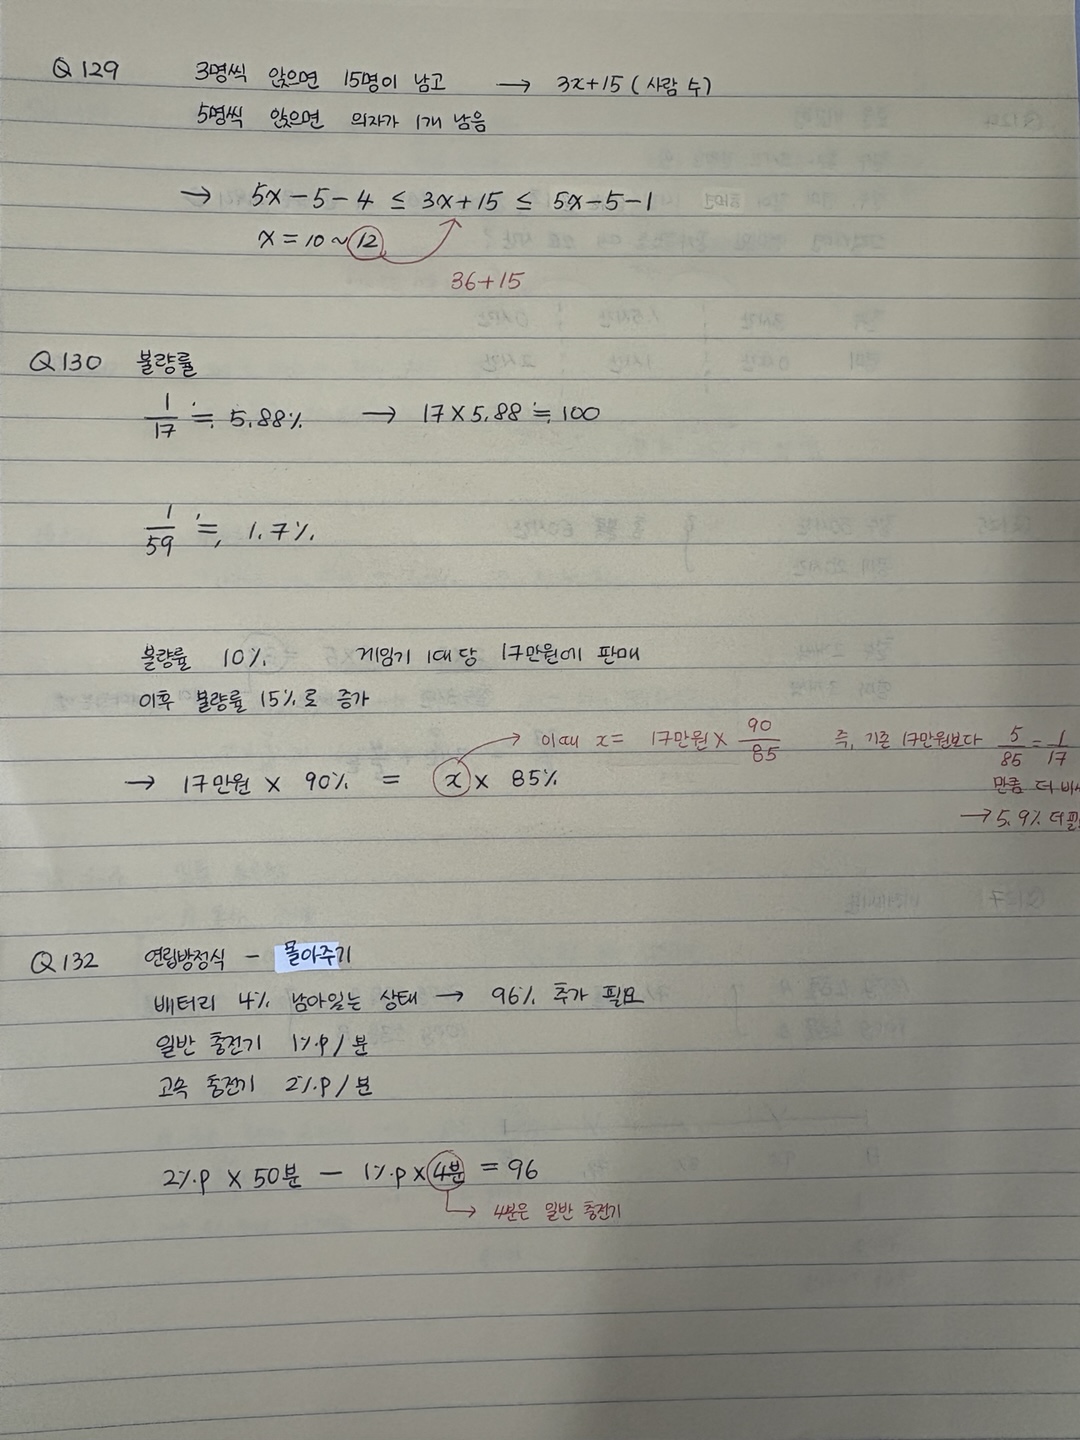 Q 129 3명씩 앉으면 15명이 남고 → 3x+15 (사람 수)
5명씩 앉으면 의자가 1개 남음
→ 5x-5-4 ≤ 3x+15 ≤ 5x-5-1
x = 10 ~ 12
36+15
Q 130 불량률
1/17 ≒ 5.88% → 17 × 5.88 ≒ 100
1/59 ≒ 1.7%
불량률 10% 게임기 1대당 17만원에 판매
이후 불량률 15%로 증가
→ 이때 x = 17만원 × 90/85 즉, 기존 17만원보다 5/85 = 1/17
→ 17만원 × 90% = x × 85% 만큼 더
→ 5.9% 더
Q 132 연립방정식 - 몰아주기
배터리 4% 남아있는 상태 → 96% 추가 필요
일반 충전기 1%p/분
고속 충전기 2%p/분
2%p × 50분 - 1%p × 4분 = 96
→ 4분은 일반 충전기